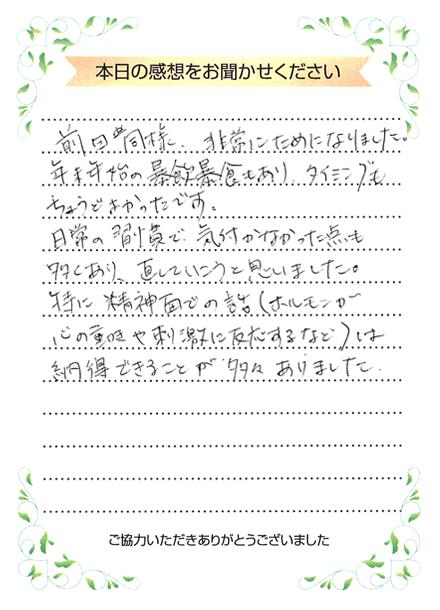 本日の感想をお聞かせください
前回同様、非常にためになりました。
年末年始の暴飲暴食もあり、タイミングも
ちょうどよかったです。
日常の習慣で、気付かなかった点も
多くあり、直していこうと思いました。
特に精神面での話(ホルモンが
心の動きや刺激に反応するなど)は
納得できることが多々ありました。
ご協力いただきありがとうございました